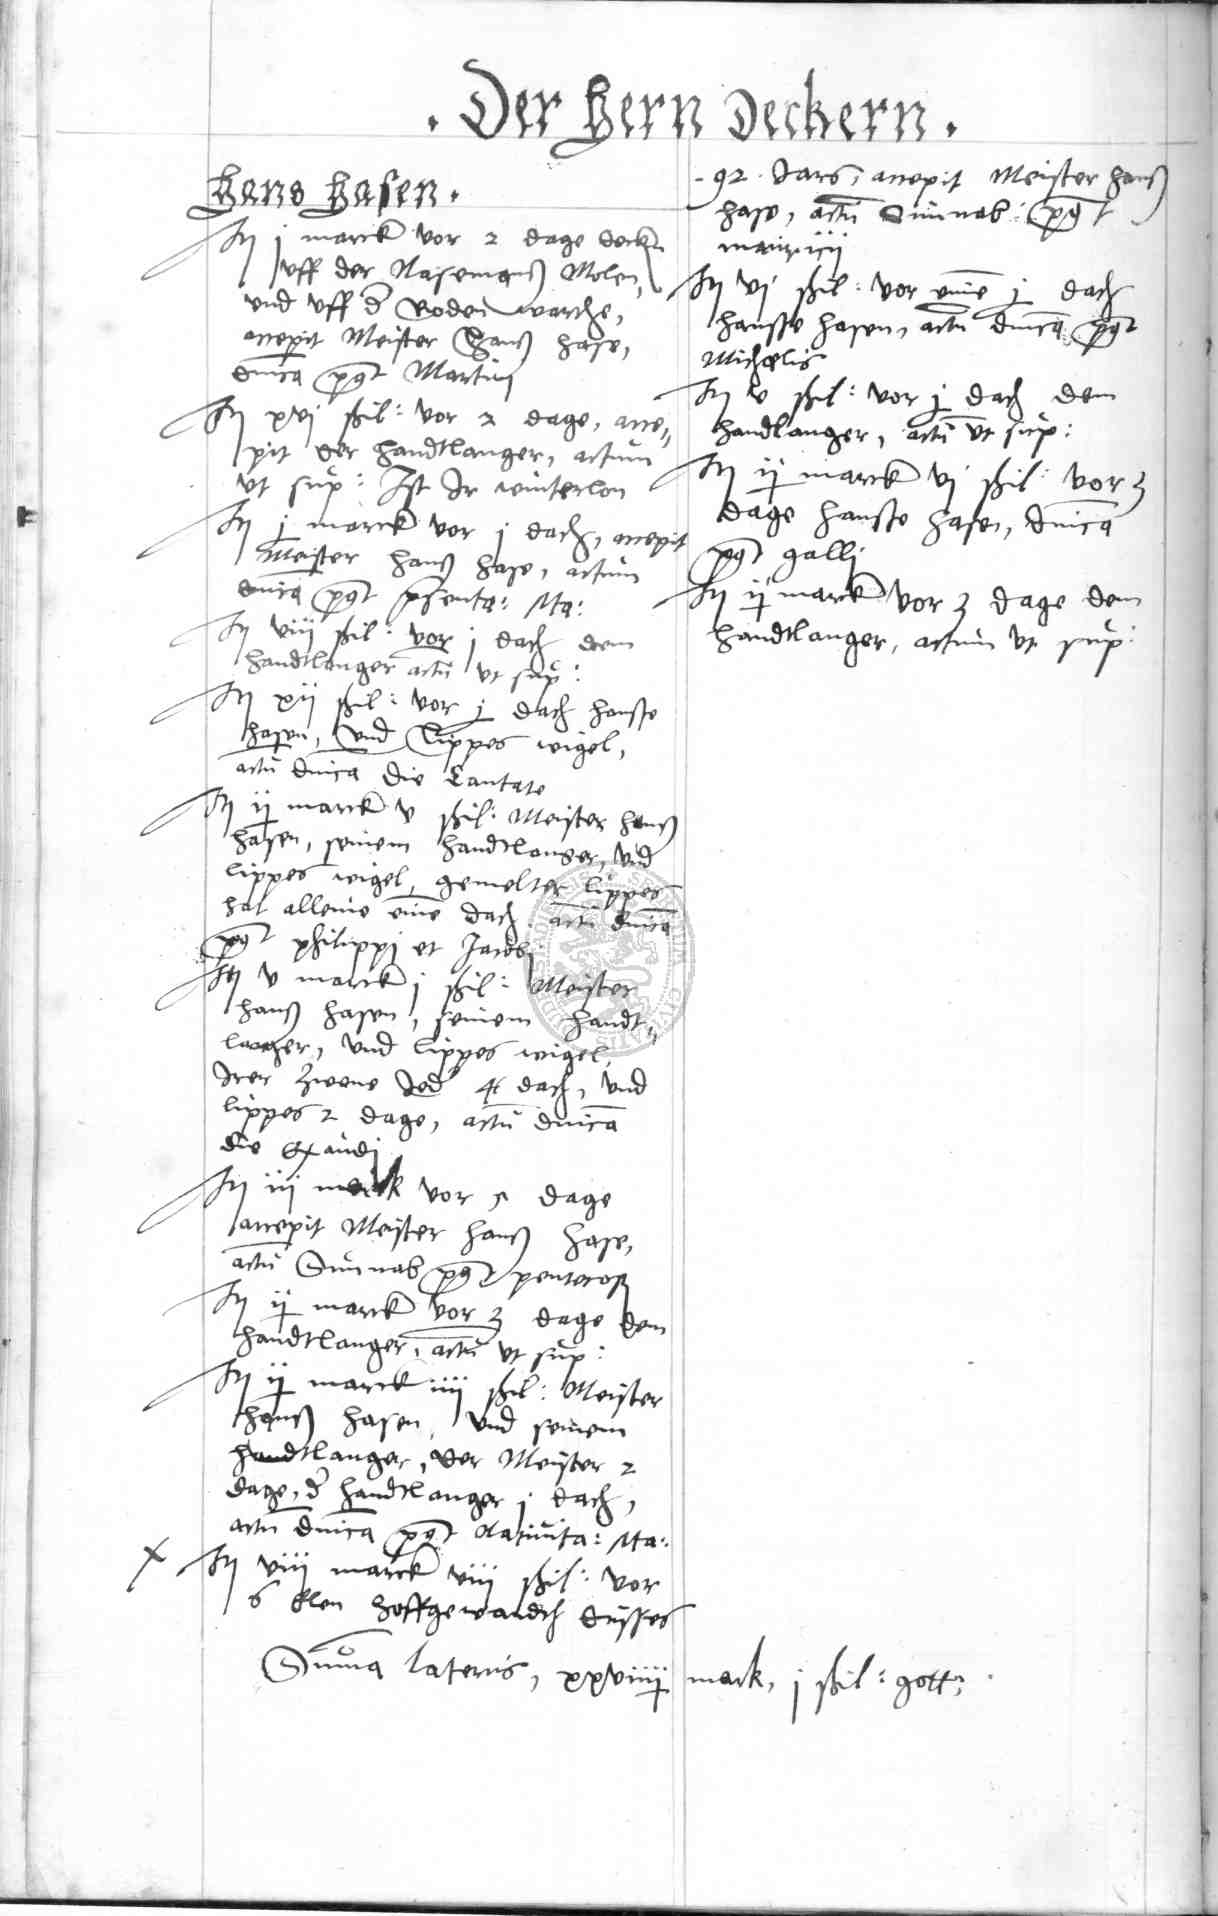 . Der Hern Deckern .
Hans Hasen .
It j marck vor 2 dage decken
uff der Nasemans Molen,
und uff d Roden warthe,
accepit Meister Hans Hase,
dnica post Martini
It xvj shil: vor 2 dage, acce„
pit der handtlanger, actum
ut sup: Ist Ir winterlon
It j marck vor j dach, accepit
Meister Hans Hase, actum
dnica post psenta: Ma:
It viij shil: vor j dach dem
handtlanger actu ut sup:
It xij shil: vor j dach hanse
hasen, und Lippes wigel,
actu dnica die Cantate
It ij marck v shil: Meister Hans
Hasen, seinem handtlanger, und
lippes wigel, gemelter lippes
hat alleine eine dach, actu dnica
post philippi et Jacobj
It v marck j shil: Meister
Hans Hasen, seinem handt„
langer, und lippes wigel,
Irer zwene Jed 4 dach, und
lippes 2 dage, actu dnica
die Exaudj
It iij marck vor 5 dage
accepit Meister Hans Hase,
actu Sunnab post pentecos
It ij marck vor 3 dage dem
handtlanger, actu ut sup:
It ij marck iiij shil: Meister
Hans Hasen, und seinem
handtlanger, der Meister 2
dage, d handtlanger j dach,
actu dnica post Nativita: Ma:
It viij marck viij shil: vor
6 Elen hoffgewandth dusses
- 92 . Jars, accepit Meister Hans
Hase, actu Sunnab: post
mauricij
It vj shil: vor eine j dach
hansse hasen, actu dnica post
Michaelis
It v shil: vor j dach dem
handlanger, actu ut sup:
It ij marck vj shil: vor 3
dage hansse hasen, dnica
post gallj
It ij marck vor 3 dage dem
handtlanger, actum ut sup:
Suma lateris, mark, j shil: gott: